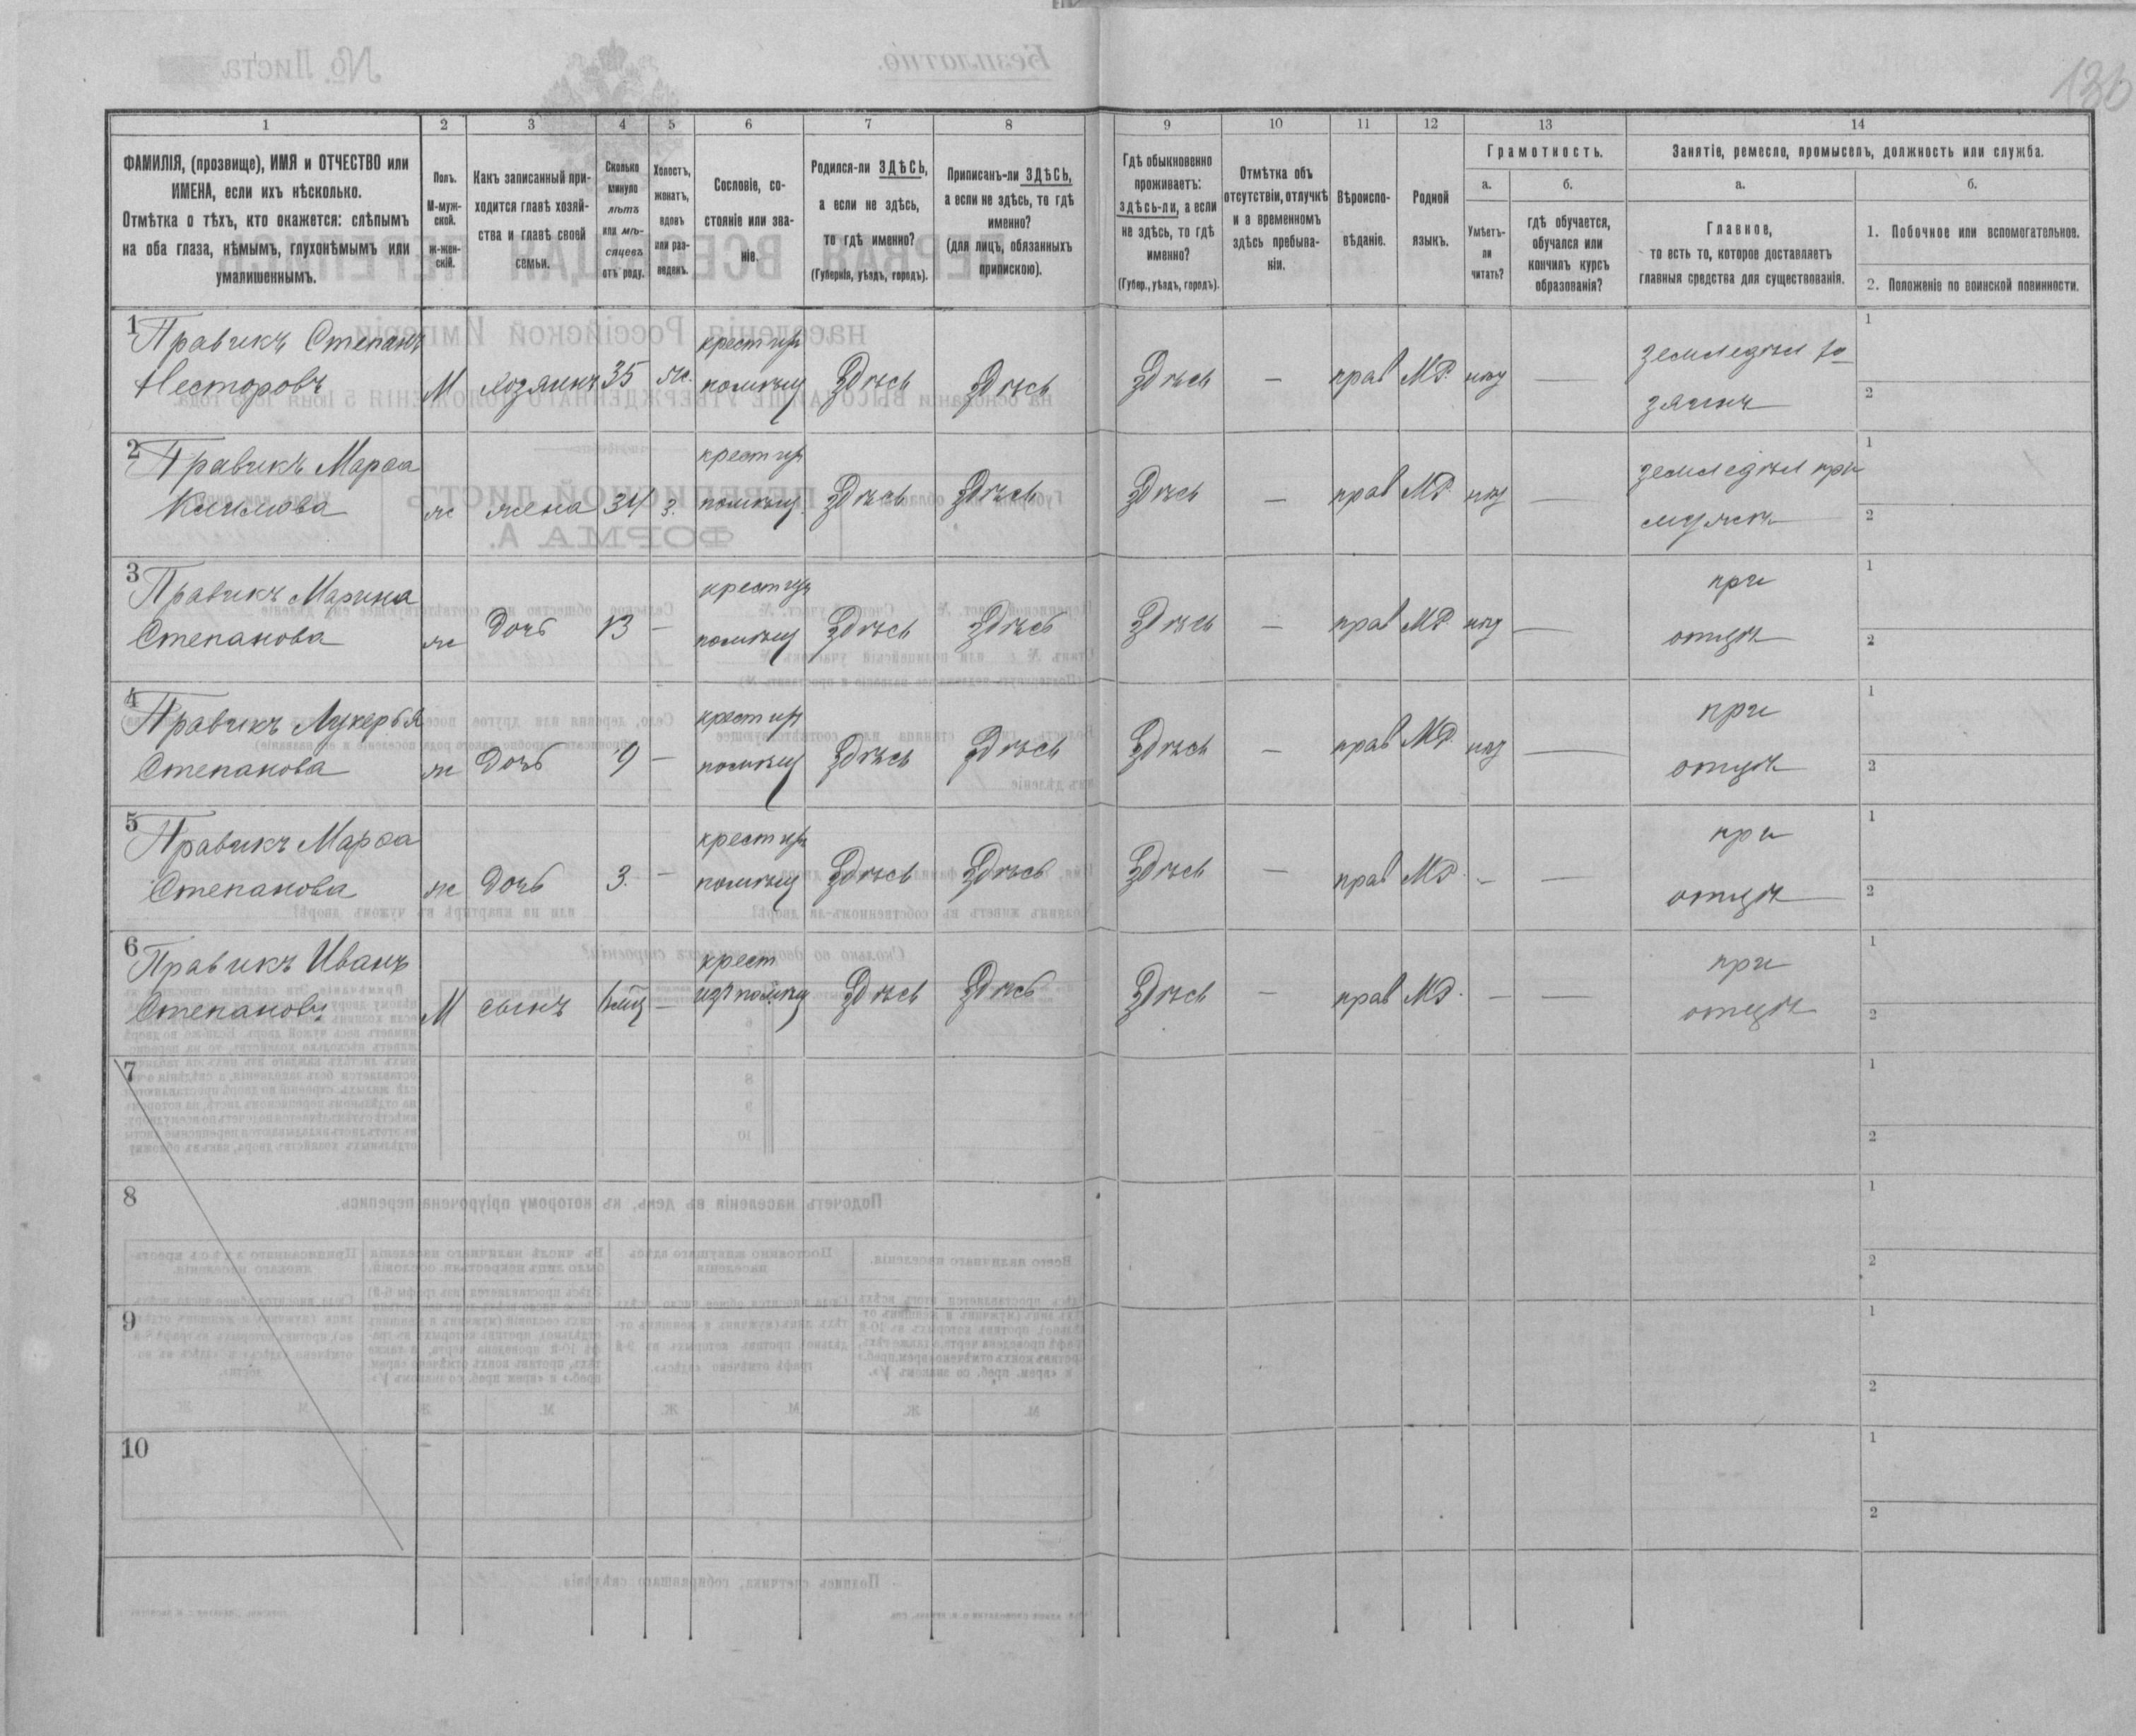 136
1 2 3 4 5 6 7 8 9 10 11 12 13 14
ФАМИЛІЯ, (прозвище), ИМЯ и ОТЧЕСТВО или
ИМЕНА, если ихъ нѣсколько.
Отмѣтка о тѣхъ, кто окажется: слѣпымъ
на оба глаза, нѣмымъ, глухонѣмымъ или
умалишеннымъ.
Полъ.
М-муж-
ской.
ж-жен-
скій.
Какъ записанный при-
ходится главѣ хозяй-
ства и главѣ своей
семьи.
Сколько
минуло
лѣтъ
или мѣ-
сяцевъ
отъ роду.
Холостъ,
женатъ,
вдовъ
или раз-
веденъ.
Сословіе, со-
стояніе или зва-
ніе.
Родился-ли ЗДѢСЬ,
а если не здѣсь,
то гдѣ именно?
(Губернія, уѣздъ, городъ).
Приписанъ-ли ЗДѢСЬ,
а если не здѣсь, то гдѣ
именно?
(для лицъ, обязанныхъ
припискою).
Гдѣ обыкновенно
проживаетъ:
здѣсь-ли, а если
не здѣсь, то гдѣ
именно?
(Губер., уѣздъ, городъ).
Отмѣтка объ
отсутствіи, отлучкѣ
и а временномъ
здѣсь пребыва-
ніи.
Вѣроиспо-
вѣданіе.
Родной
языкъ.
Грамотность.
а.
Умѣетъ-
ли
читать?
б.
гдѣ обучается,
обучался или
кончилъ курсъ
образованія?
Занятіе, ремесло, промыселъ, должность или служба.
а.
Главное,
то есть то, которое доставляетъ
главныя средства для существованія.
б.
1. Побочное или вспомогательное.
2. Положеніе по воинской повинности.
1 Правикъ Степанъ крест изъ земледѣл хо 1
Несторовъ М хозяинъ 35 ж. помѣщ Здѣсь Здѣсь Здѣсь — прав МР. нѣт — зяинъ 2
2 Правикъ Марѳа крест изъ земледѣл при 1
Климова ж жена 34 з. помѣщ Здѣсь Здѣсь Здѣсь — прав МР нѣт — мужѣ 2
3 Правикъ Марина крест изъ при 1
Степанова ж дочь 13 — помѣщ Здѣсь Здѣсь Здѣсь — прав МР. нѣт — отцѣ 2
4 Правикъ Лукерья крест изъ при 1
Степанова ж дочь 9 — помѣщ Здѣсь Здѣсь Здѣсь — прав МР. нѣт — отцѣ 2
5 Правикъ Марѳа крест изъ при 1
Степанова ж дочь 3. — помѣщ Здѣсь Здѣсь Здѣсь — прав МР. — — отцѣ 2
6 Правикъ Иванъ крест при 1
Степановъ М сынъ — изъ помѣщ Здѣсь Здѣсь Здѣсь — прав МР. — — отцѣ 2
7 1
2
8 1
2
9 1
2
10 1
2